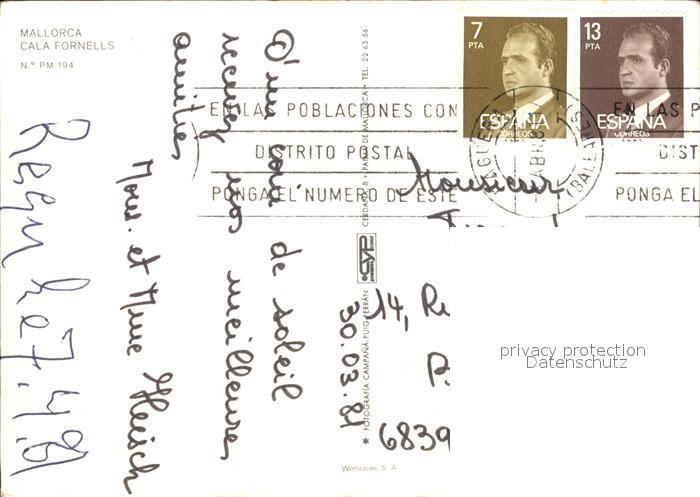 MALLORCA
CALA FORNELLS
N.º PM 194
D'un coin de soleil
recevez nos meilleures
amitiés
Mons. et Mme
30.03.81
Reçu le 7.4.81
CERDAÑA, 8 • PALMA DE MALLORCA • TEL. 22 63 66
CYP
* FOTOGRAFÍA CAMPAÑÁ-PUIG-FERRÁN
Werticrom, S. A.
7
PTA
ESPAÑA
CORREOS
13
PTA
ESPAÑA
CORREOS
EN LAS POBLACIONES CON
DISTRITO POSTAL
PONGA EL NUMERO DE ESTE
EN LAS P
DIST
PONGA EL
ABR
(BALEARES)
Monsieur
14, Ru
6839
privacy protection
Datenschutz